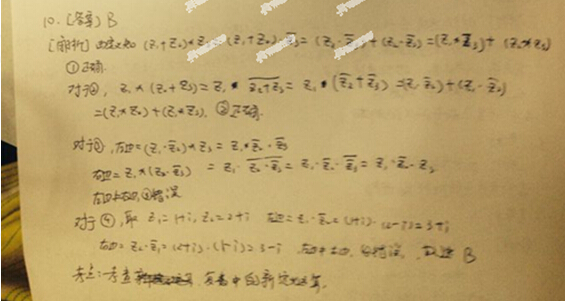 10. [答案] B
[解析] 由定义知 (z₁+z₂)*z₃=(z₁+z₂)·z̄₃=(z₁·z̄₃)+(z₂·z̄₃)=(z₁*z₃)+(z₂*z₃)
①正确.
对于②, z₁*(z₂+z₃)=z₁·\overline{z₂+z₃}=z₁·(z̄₂+z̄₃)=(z₁·z̄₂)+(z₁·z̄₃)
=(z₁*z₂)+(z₁*z₃), ②正确.
对于③, 左边=(z₁·z̄₂)*z₃=z₁·z̄₂·z̄₃
右边=z₁*(z₂·z̄₃)=z₁·\overline{z₂·z̄₃}=z₁·z̄₂·z₃
左边≠右边, ③错误
对于④, 取 z₁=1+i, z₂=2+i 左边=z₁·z̄₂=(1+i)·(2-i)=3+i
右边=z₂·z̄₁=(2+i)·(1-i)=3-i, 左边≠右边, ④错误, 故选 B
考点: 考查 复数中的新定义运算.